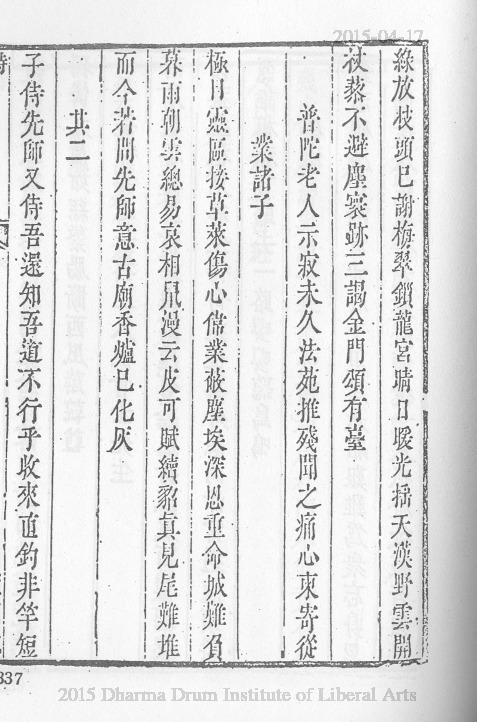 2015-04-17
綠放枝頭巳謝梅翠鎖龍宮晴日暖光搖天漢野雲開
杖藜不避塵寰跡三謁金門頌有臺
普陀老人示寂未久法苑摧殘聞之痛心柬寄從
業諸子
極目靈區接草萊傷心偹業蔽塵埃深恩重命城難負
暮雨朝雲總易哀相鼠漫云皮可賦續貂真見尾難堆
而今若問先師意古廟香爐巳化灰
其二
子侍先師又侍吾還知吾道不行乎收來直鈎非竿短
337
2015 Dharma Drum Institute of Liberal Arts